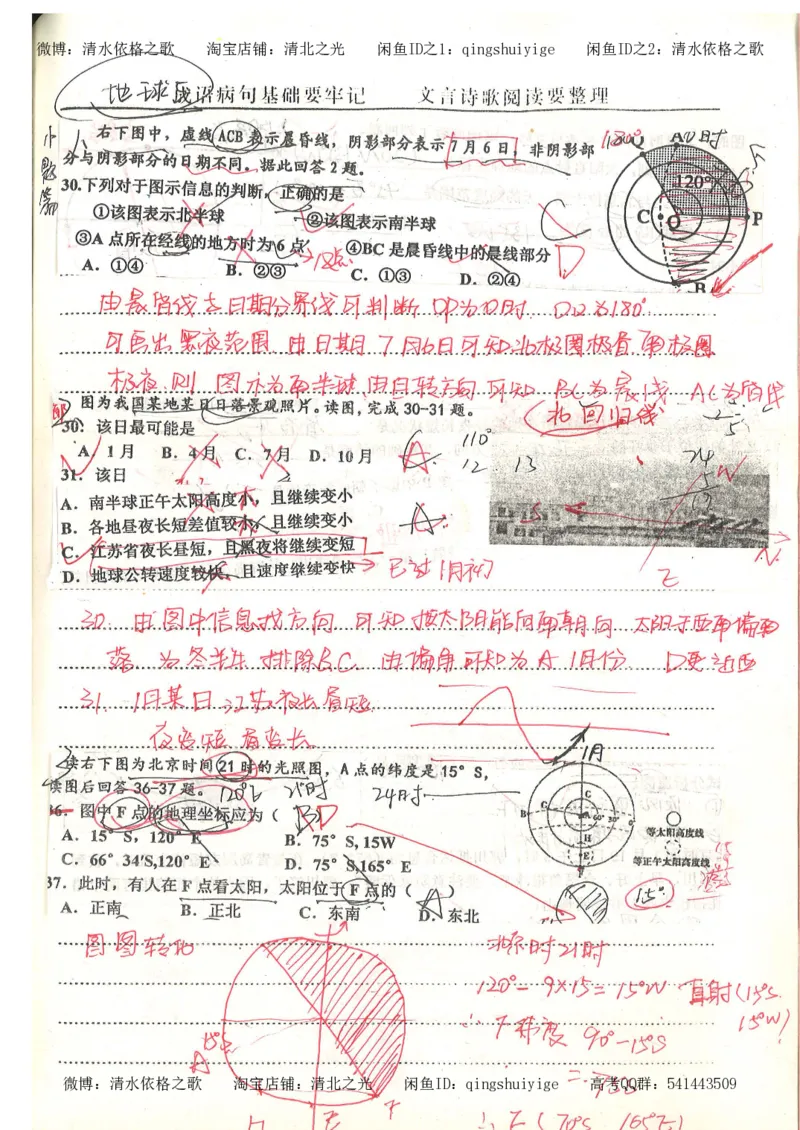 微博：清水依格之歌 淘宝店铺：清北之光 闲鱼ID之1：qingshuiyige 闲鱼ID之2：清水依格之歌
地球 成语病句基础要牢记 文言诗歌阅读要整理
小题篇
1、右下图中，虚线 ACB 表示晨昏线，阴影部分表示 7月6日，非阴影部
分与阴影部分的日期不同。据此回答2题。
30.下列对于图示信息的判断，正确的是
①该图表示北半球 ②该图表示南半球
③A点所在经线的地方时为6点 ④BC是晨昏线中的晨线部分
A. ①④ B. ②③ C. ①③ D. ②④
C D
180° Q A 0时
120°
C O P
B
由晨昏线与日期分界线可判断 OP为0时 OQ为180°
可画出黑夜范围 由日期7月6日可知北极圈极昼 南极圈
极夜 则图示为南半球 由自转方向可知 BC为晨线 AC为昏线
图为我国某地某日日落景观照片。读图，完成30-31题。
北回归线
30. 该日最可能是
A. 1月 B. 4月 C. 7月 D. 10月
A
110°
12 13
24
31. 该日
A. 南半球正午太阳高度小，且继续变小
B. 各地昼夜长短差值较小，且继续变小
C. 江苏省夜长昼短，且黑夜将继续变短
D. 地球公转速度较快，且速度继续变快
已过1月初
30. 由图中信息找方向 可知按太阳能向南朝向 太阳于西南偏南
落 为冬半年 排除B.C. 由偏角可知为A 1月份 D更近西
31. 1月某日 江苏夜长昼短
夜变短 昼变长
1月
读右下图为北京时间21时的光照图，A点的纬度是15°S，
读图后回答36-37题。
120°E 21时
24时
36. 图中F点的地理坐标应为（ ）
BD
A. 15°S，120°E B. 75°S,15W
C. 66°34′S,120°E D. 75°S,165°E
等太阳高度线
等正午太阳高度线
15°
37. 此时，有人在F点看太阳，太阳位于F点的（A）
A. 正南 B. 正北 C. 东南 D. 东北
图图转化
北京时21时
120°-9×15=15°W 直射(15°S.
15°W)
∴F纬度 90°-15°S
=75°S
微博：清水依格之歌 淘宝店铺：清北之光 闲鱼ID：qingshuiyige 高考QQ群：541443509